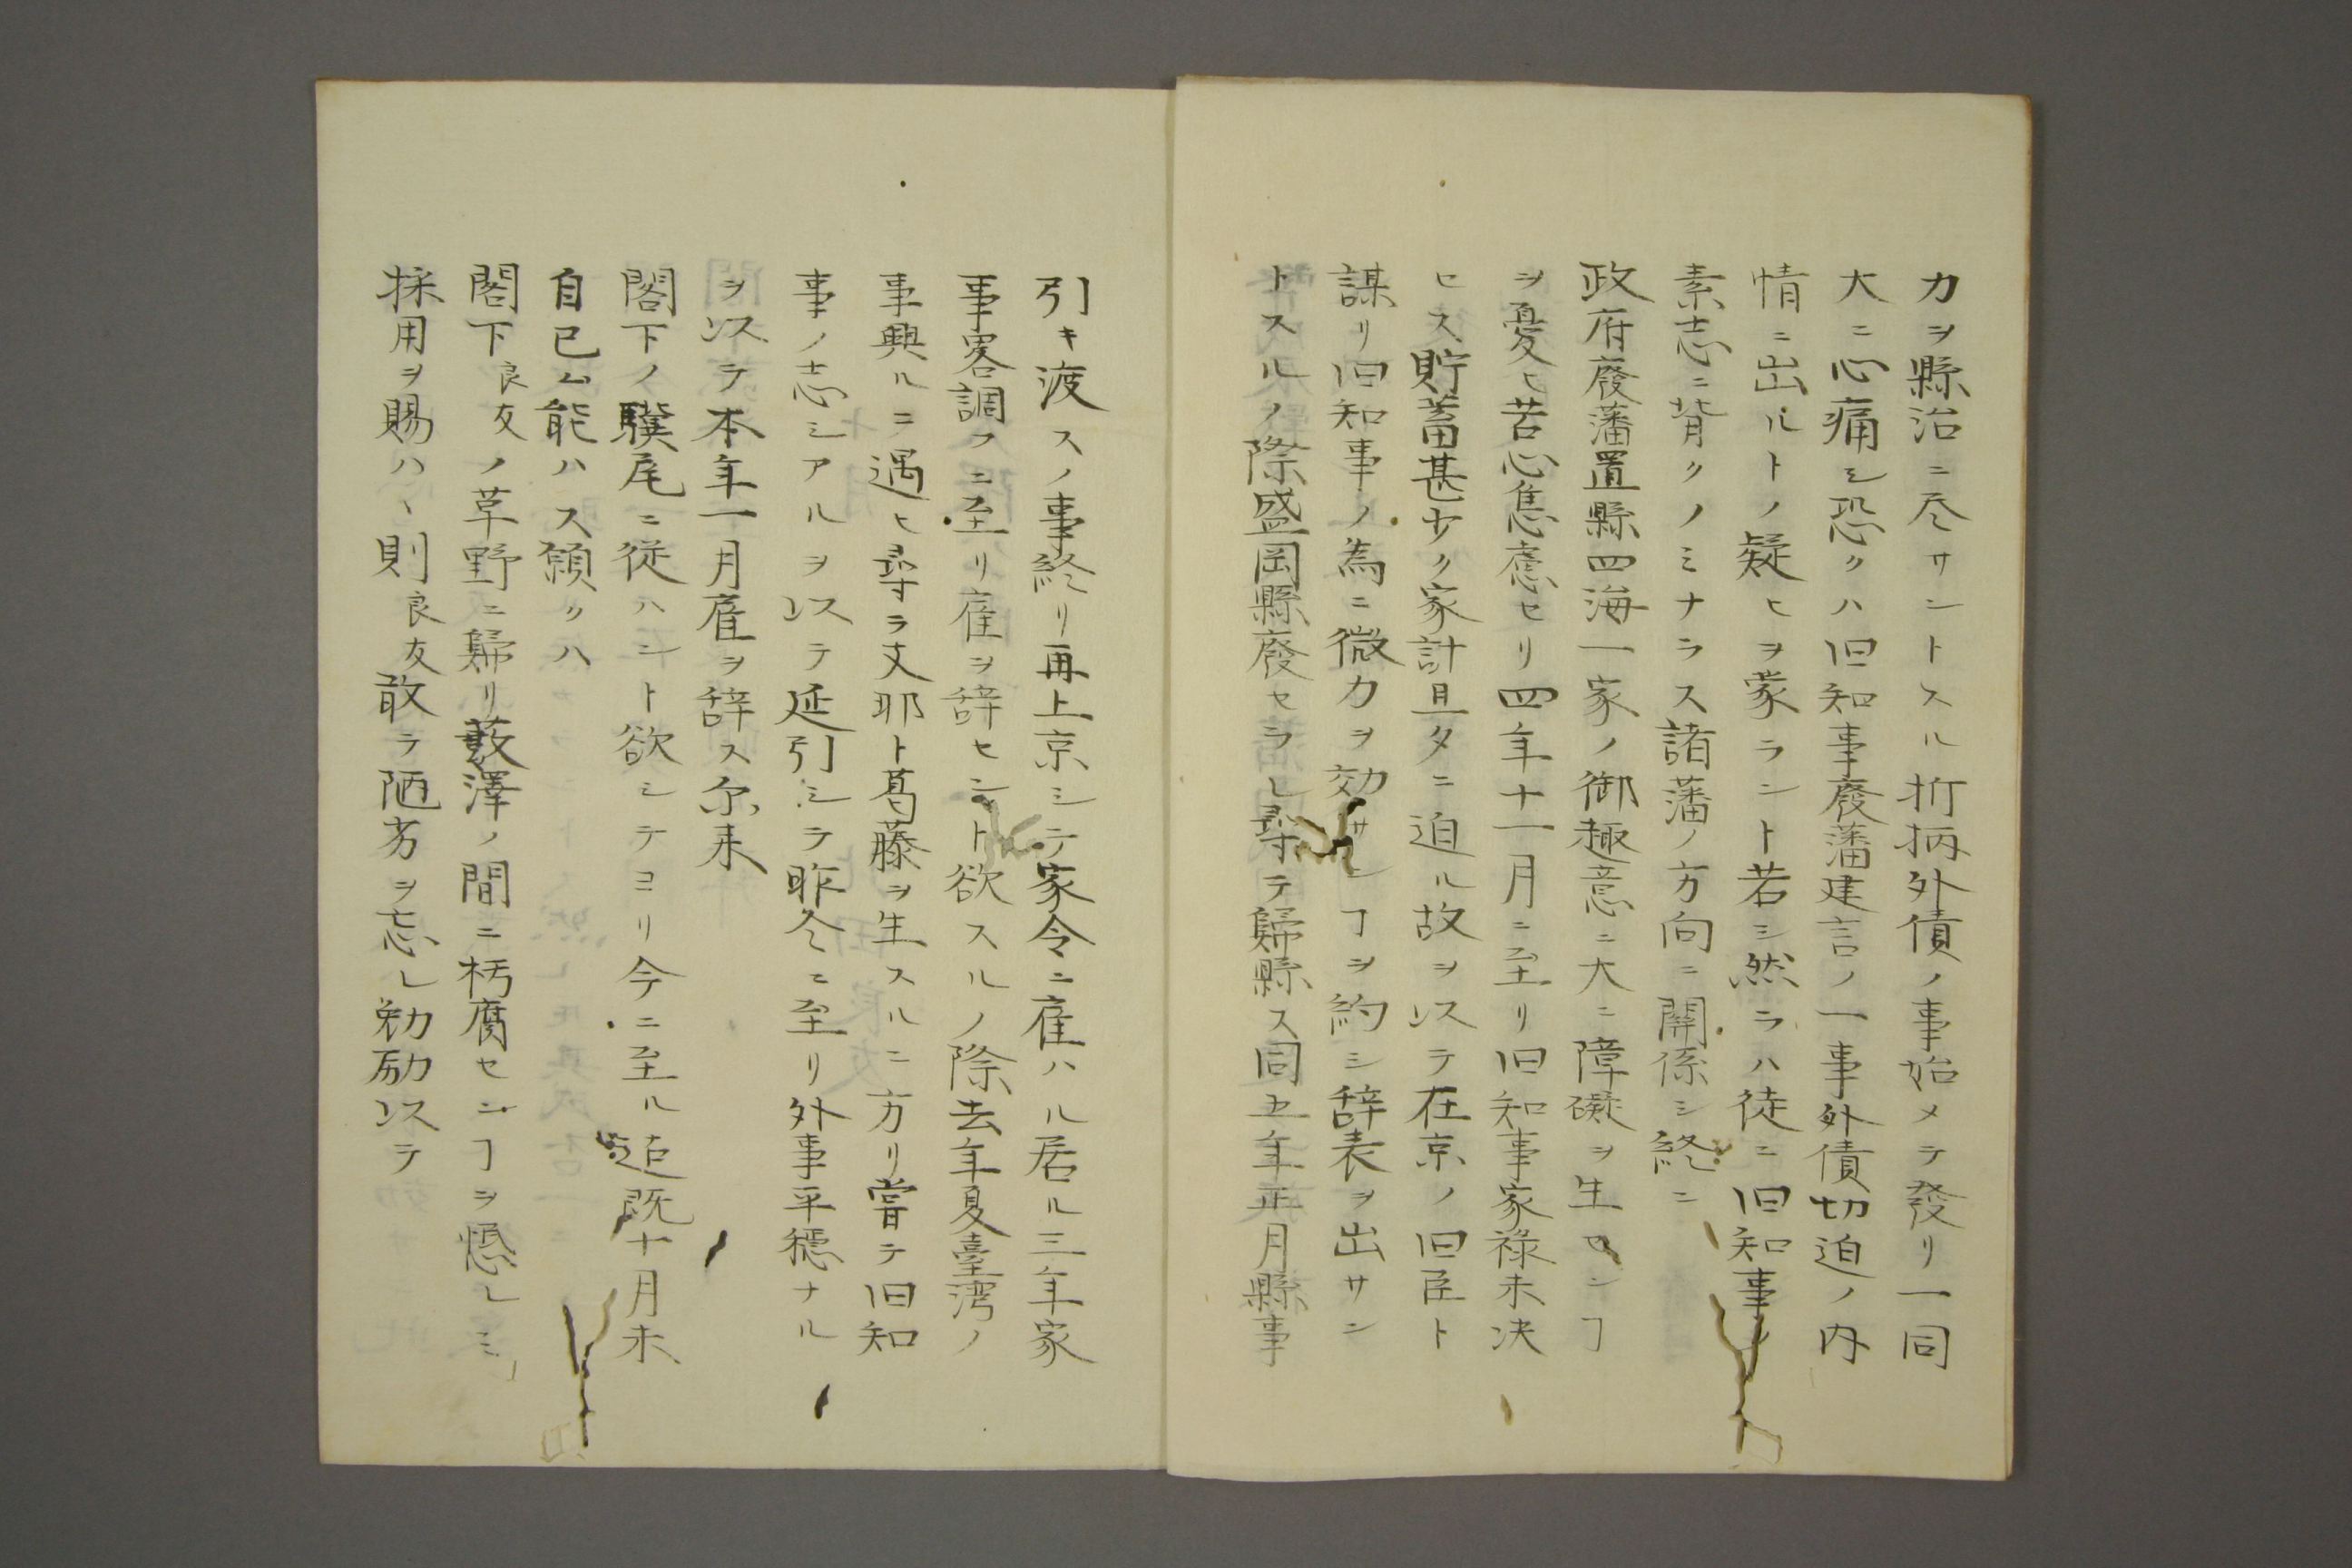 力ヲ縣治ニ尽サントスル折柄外債ノ事始メテ發リ一同
大ニ心痛シ恐クハ旧知事廢藩建言ノ一事外債切迫ノ内
情ニ出ルトノ疑ヒヲ蒙ラント若シ然ラハ徒ニ旧知事ノ
素志ニ背クノミナラス諸藩ノ方向ニ関係シ終ニ
政府廢藩置縣四海一家ノ御趣意ニ大ニ障礙ヲ生センヿ
ヲ憂ヒ苦心焦慮セリ四年十一月ニ至リ旧知事家祿未决
ヒス貯蓄甚少ク家計旦タニ迫ル故ヲ以テ在京ノ旧臣ト
謀リ旧知事ノ為ニ微力ヲ効サンヿヲ約シ辞表ヲ出サン
トスルノ際盛岡縣廢セラレ尋テ歸縣ス同五年正月縣事
引キ渡スノ事終リ再上京シテ家令ニ雇ハル居ル三年家
事畧調フニ至リ雇ヲ辞セント欲スルノ際去年夏臺湾ノ
事興ルニ遇ヒ尋ラ支那ト葛藤ヲ生スルニ方リ嘗テ旧知
事ノ志シアルヲ以テ延引シラ昨冬ニ至リ外事平穩ナル
ヲ以テ本年一月雇ヲ辞ス尓来
閣下ノ驥尾ニ従ハント欲シテヨリ今ニ至ル迠既十月未
自已ム能ハス願クハ
閣下良友ノ草野ニ歸リ藪澤ノ間ニ朽腐センヿヲ愍レミ
採用ヲ賜ハヽ則良友敢ラ陋劣ヲ忘レ勅励以テ